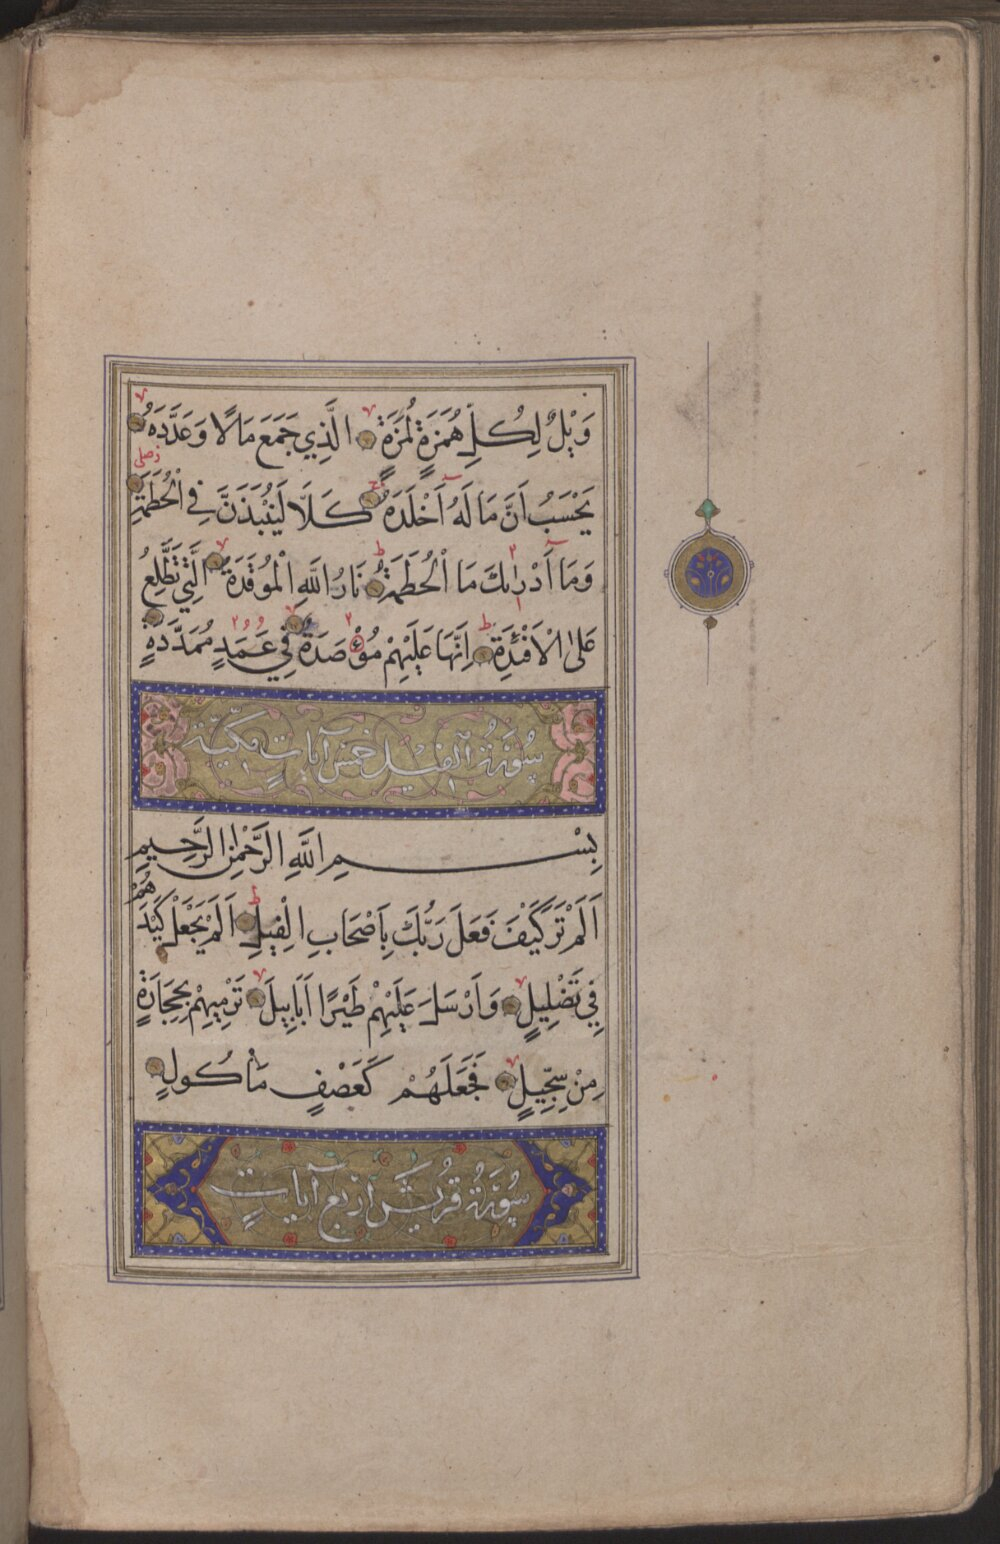 وَيْلٌ لِكُلِّ هُمَزَةٍ لُمَزَةٍ الَّذِي جَمَعَ مَالًا وَعَدَّدَهُ
يَحْسَبُ اَنَّ مَالَهُ اَخْلَدَهُ كَلَّا لَيُنْبَذَنَّ فِي الْحُطَمَةِ
وَمَا اَدْرٰىكَ مَا الْحُطَمَةُ نَارُ اللّٰهِ الْمُوقَدَةُ الَّتِي تَطَّلِعُ
عَلَى الْاَفْئِدَةِ اِنَّهَا عَلَيْهِمْ مُؤْصَدَةٌ فِي عَمَدٍ مُمَدَّدَةٍ
سُورَةُ الْفِيلِ خَمْسُ آيَاتٍ مَكِّيَّة
بِسْمِ اللّٰهِ الرَّحْمٰنِ الرَّحِيمِ
اَلَمْ تَرَ كَيْفَ فَعَلَ رَبُّكَ بِاَصْحَابِ الْفِيلِ اَلَمْ يَجْعَلْ كَيْدَهُمْ
فِي تَضْلِيلٍ وَاَرْسَلَ عَلَيْهِمْ طَيْرًا اَبَابِيلَ تَرْمِيهِمْ بِحِجَارَةٍ
مِنْ سِجِّيلٍ فَجَعَلَهُمْ كَعَصْفٍ مَأْكُولٍ
سُورَةُ قُرَيْشٍ اَرْبَعُ آيَاتٍ